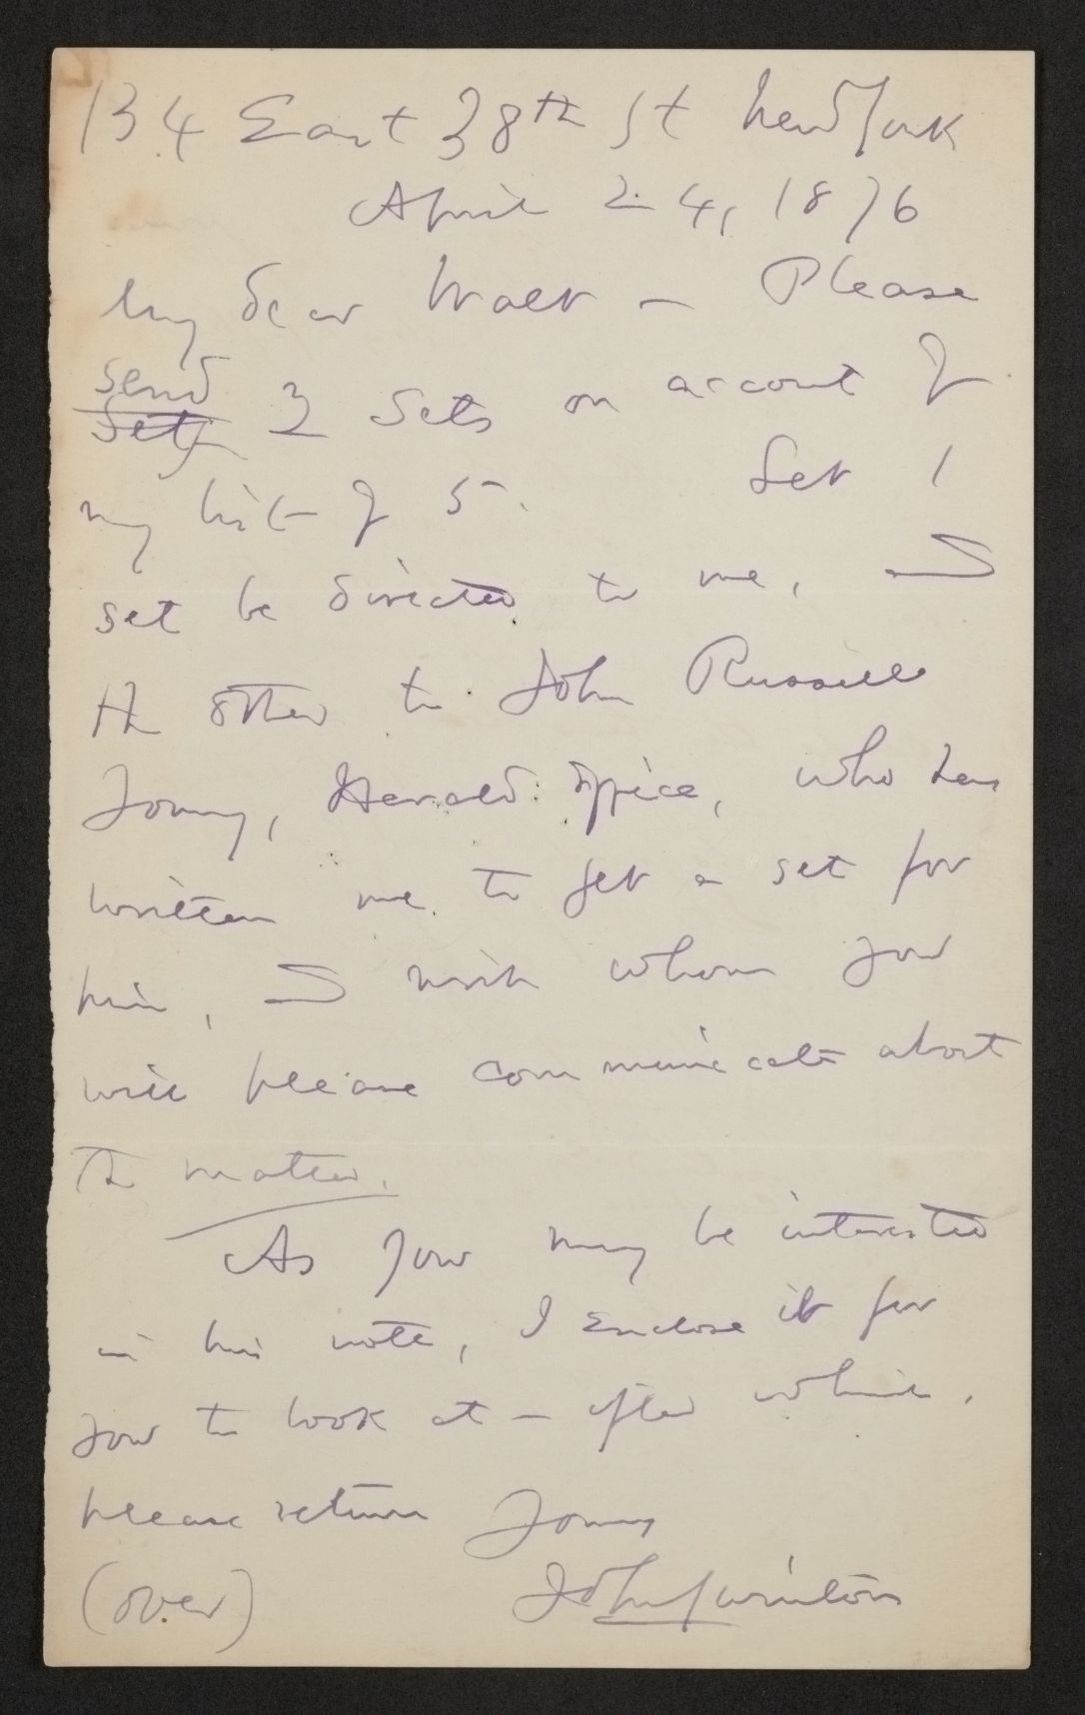 134 East 38th St New York
April 24, 1876
My dear Walt — Please
send
Sets 2 Sets on account of
my list of 5. Let 1
set be directed to me, &
the other to John Russell
Young, Herald office, who has
written me to get a set for
him, & with whom you
will please communicate about
the matter.
As you may be interested
in his note, I enclose it for
you to look at — after which,
please return Yours
(over) John Swinton